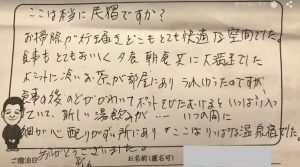 ここは本当に民宿ですか?
お掃除が行き届きどこもとても快適な空間でした。
食事もとてもおいしく夕食、朝食共に大満足でした
ポットに冷いお茶が部屋にあり うれしかったのですが
食事の後のどがかわいてポットをかたむけるといっぱい入っ
ていて、新しい湯飲みが… いつの間に
細かい心配りが随所にあり ここはりっぱな温泉宿でした。
ありがとうございました。
ご宿泊日
お名前(匿名可)